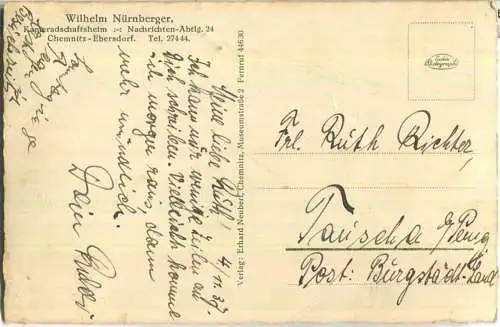 Wilhelm Nürnberger,
Kameradschaftsheim Nachrichten-Abtlg. 24
Chemnitz-Ebersdorf. Tel. 27444.
Meine liebe Ruth! 4/11.39.
Ich kann nur wenige Zeilen an
Dich schreiben. Vielleicht komme
ich morgen ran, dann
mehr mündlich.
Dein
Verlag: Erhard Neubert, Chemnitz, Museumstraße 2 Fernruf 44630
Echte Photographie
Frl. Ruth Richter,
Tauscha b/Penig
Post: Burgstädt-Land